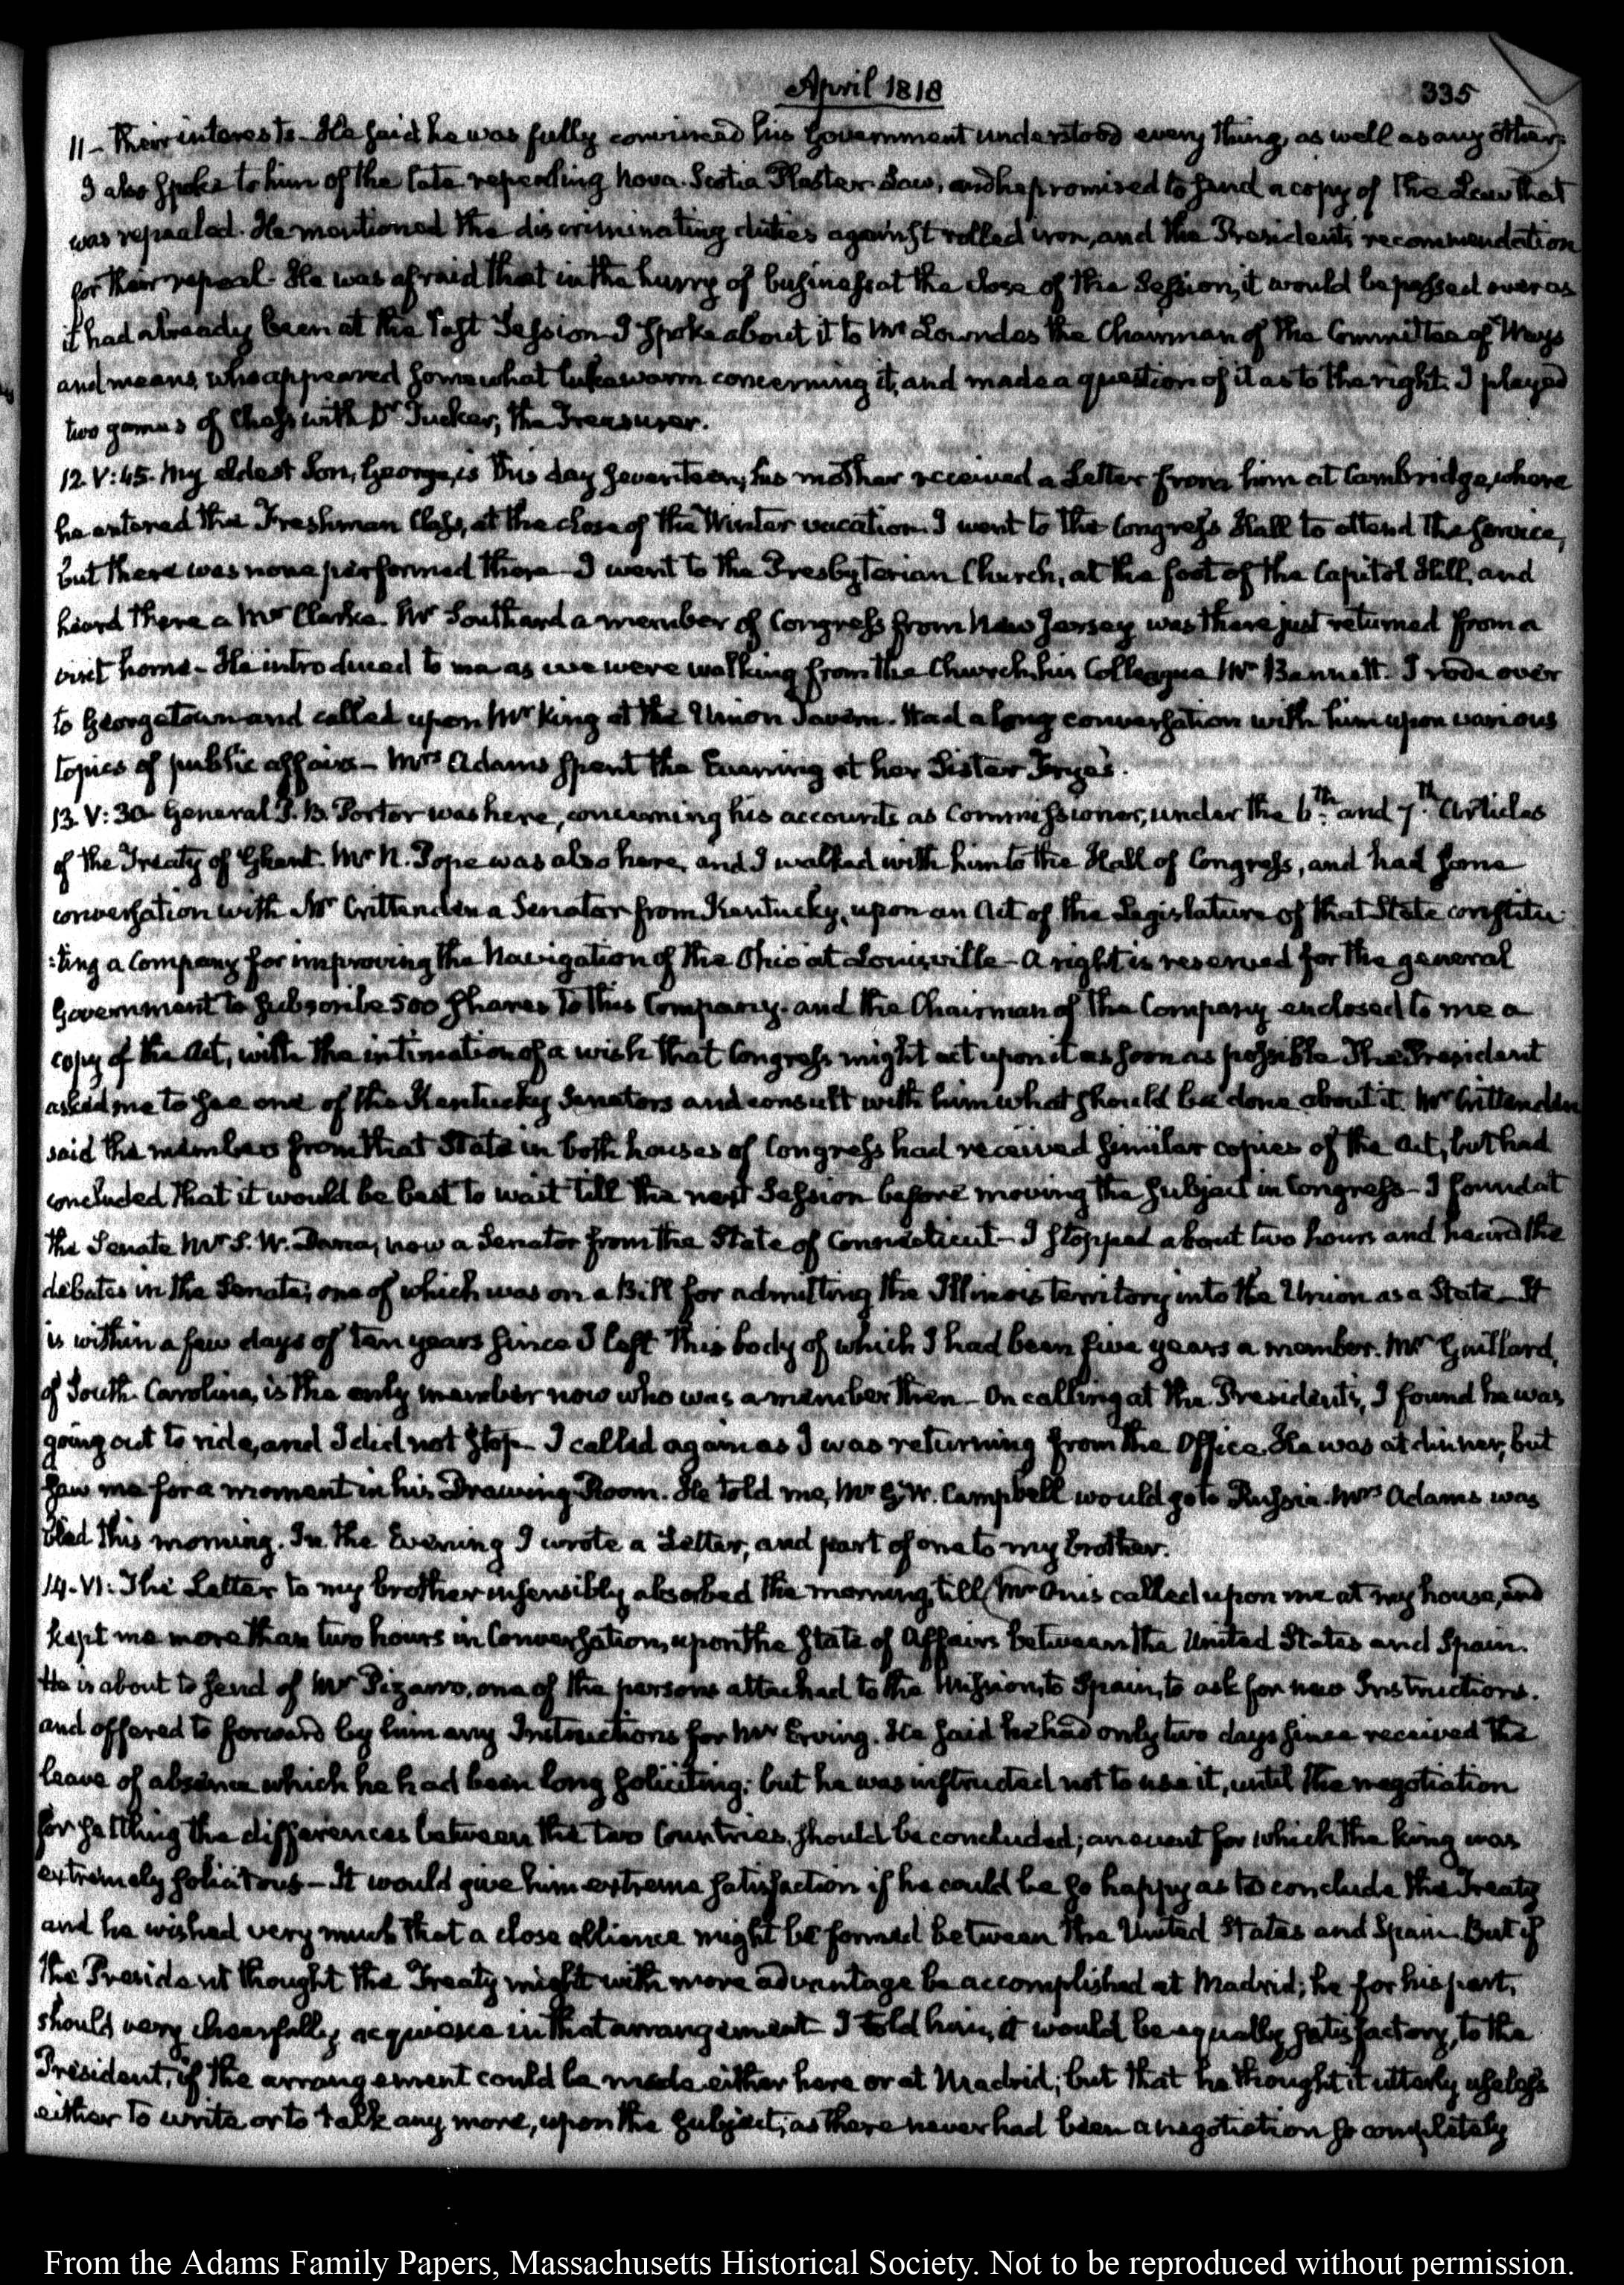 April 1818
335
11– their interests– He said he was fully convinced his Government understood every thing, as well as any other.
I also spoke to him of the late repealing Nova-Scotia Plaster Law, and he promised to send a copy of the Law that
was repealed. He mentioned the discriminating duties against rolled iron, and the President's recommendation
for their repeal– He was afraid that in the hurry of business at the close of the Session, it would be passed over as
it had already been at the last Session– I spoke about it to Mr Lowndes the Chairman of the Committee of Ways
and means, who appeared somewhat lukewarm concerning it, and made a question of it as to the right. I played
two games of Chess with Dr Tucker, the Treasurer.
12. V:45. My eldest Son, George, is this day seventeen; his mother received a Letter from him at Cambridge, where
he entered the Freshman Class, at the close of the Winter vacation. I went to the Congress Hall to attend the service,
but there was none performed there– I went to the Presbyterian Church, at the foot of the Capitol Hill, and
heard there a Mr Clarke. Mr Southard a member of Congress from New Jersey was there just returned from a
visit home– He introduced to me as we were walking from the Church, his Colleague Mr Bennett. I rode over
to Georgetown and called upon Mr King at the Union Tavern. Had a long conversation with him upon various
topics of public affairs– Mrs Adams spent the Evening at her Sister Frye's.
13. V:30. General P. B. Porter was here, concerning his accounts as Commissioner, under the 6th. and 7th. Articles
of the Treaty of Ghent. Mr N. Pope was also here, and I walked with him to the Hall of Congress, and had some
conversation with Mr Crittenden a Senator from Kentucky, upon an Act of the Legislature of that State constitu-
:ting a Company for improving the Navigation of the Ohio at Louisville– A right is reserved for the general
Government to subscribe 500 shares to this Company– and the Chairman of the Company enclosed to me a
copy of the Act, with the intimation of a wish that Congress might act upon it as soon as possible. The President
asked me to see one of the Kentucky Senators and consult with him what should be done about it. Mr Crittenden
said the members from that State in both houses of Congress had received similar copies of the Act, but had
concluded that it would be best to wait till the next Session before moving the subject in Congress– I found at
the Senate Mr S. W. Dana, now a Senator from the State of Connecticut– I stopped about two hours and heard the
debates in the Senate; one of which was on a Bill for admitting the Illinois territory into the Union as a State– It
is within a few days of ten years since I left this body of which I had been five years a member. Mr Gaillard,
of South-Carolina, is the only member now who was a member then– On calling at the President's, I found he was
going out to ride, and I did not stop– I called again as I was returning from the Office. He was at dinner, but
saw me for a moment in his Drawing-Room. He told me, Mr G. W. Campbell would go to Russia. Mrs Adams was
bled this morning. In the Evening I wrote a Letter, and part of one to my brother.
14. VI: The Letter to my brother insensibly absorbed the morning, till (Mr Onis called upon me at my house, and
kept me more than two hours in Conversation, upon the state of Affairs between the United States and Spain.
He is about to send of Mr Pizarro, one of the persons attached to the Mission, to Spain, to ask for new Instructions.
and offered to forward by him any Instructions for Mr Erving. He said he had only two days since received the
leave of absence which he had been long soliciting; but he was instructed not to use it, until the negotiation
for settling the differences between the two Countries, should be concluded; an event for which the king was
extremely solicitous– It would give him extreme satisfaction if he could be so happy as to conclude the Treaty
and he wished very much that a close alliance might be formed between the United States and Spain. But if
the President thought the Treaty might with more advantage be accomplished at Madrid; he for his part,
should very cheerfully acquiesce in that arrangement– I told him, it would be equally satisfactory, to the
President, if the arrangement could be made either here or at Madrid; but that he thought it utterly useless
either to write or to talk any more, upon the subject; as there never had been a negotiation so completely
From the Adams Family Papers, Massachusetts Historical Society. Not to be reproduced without permission.